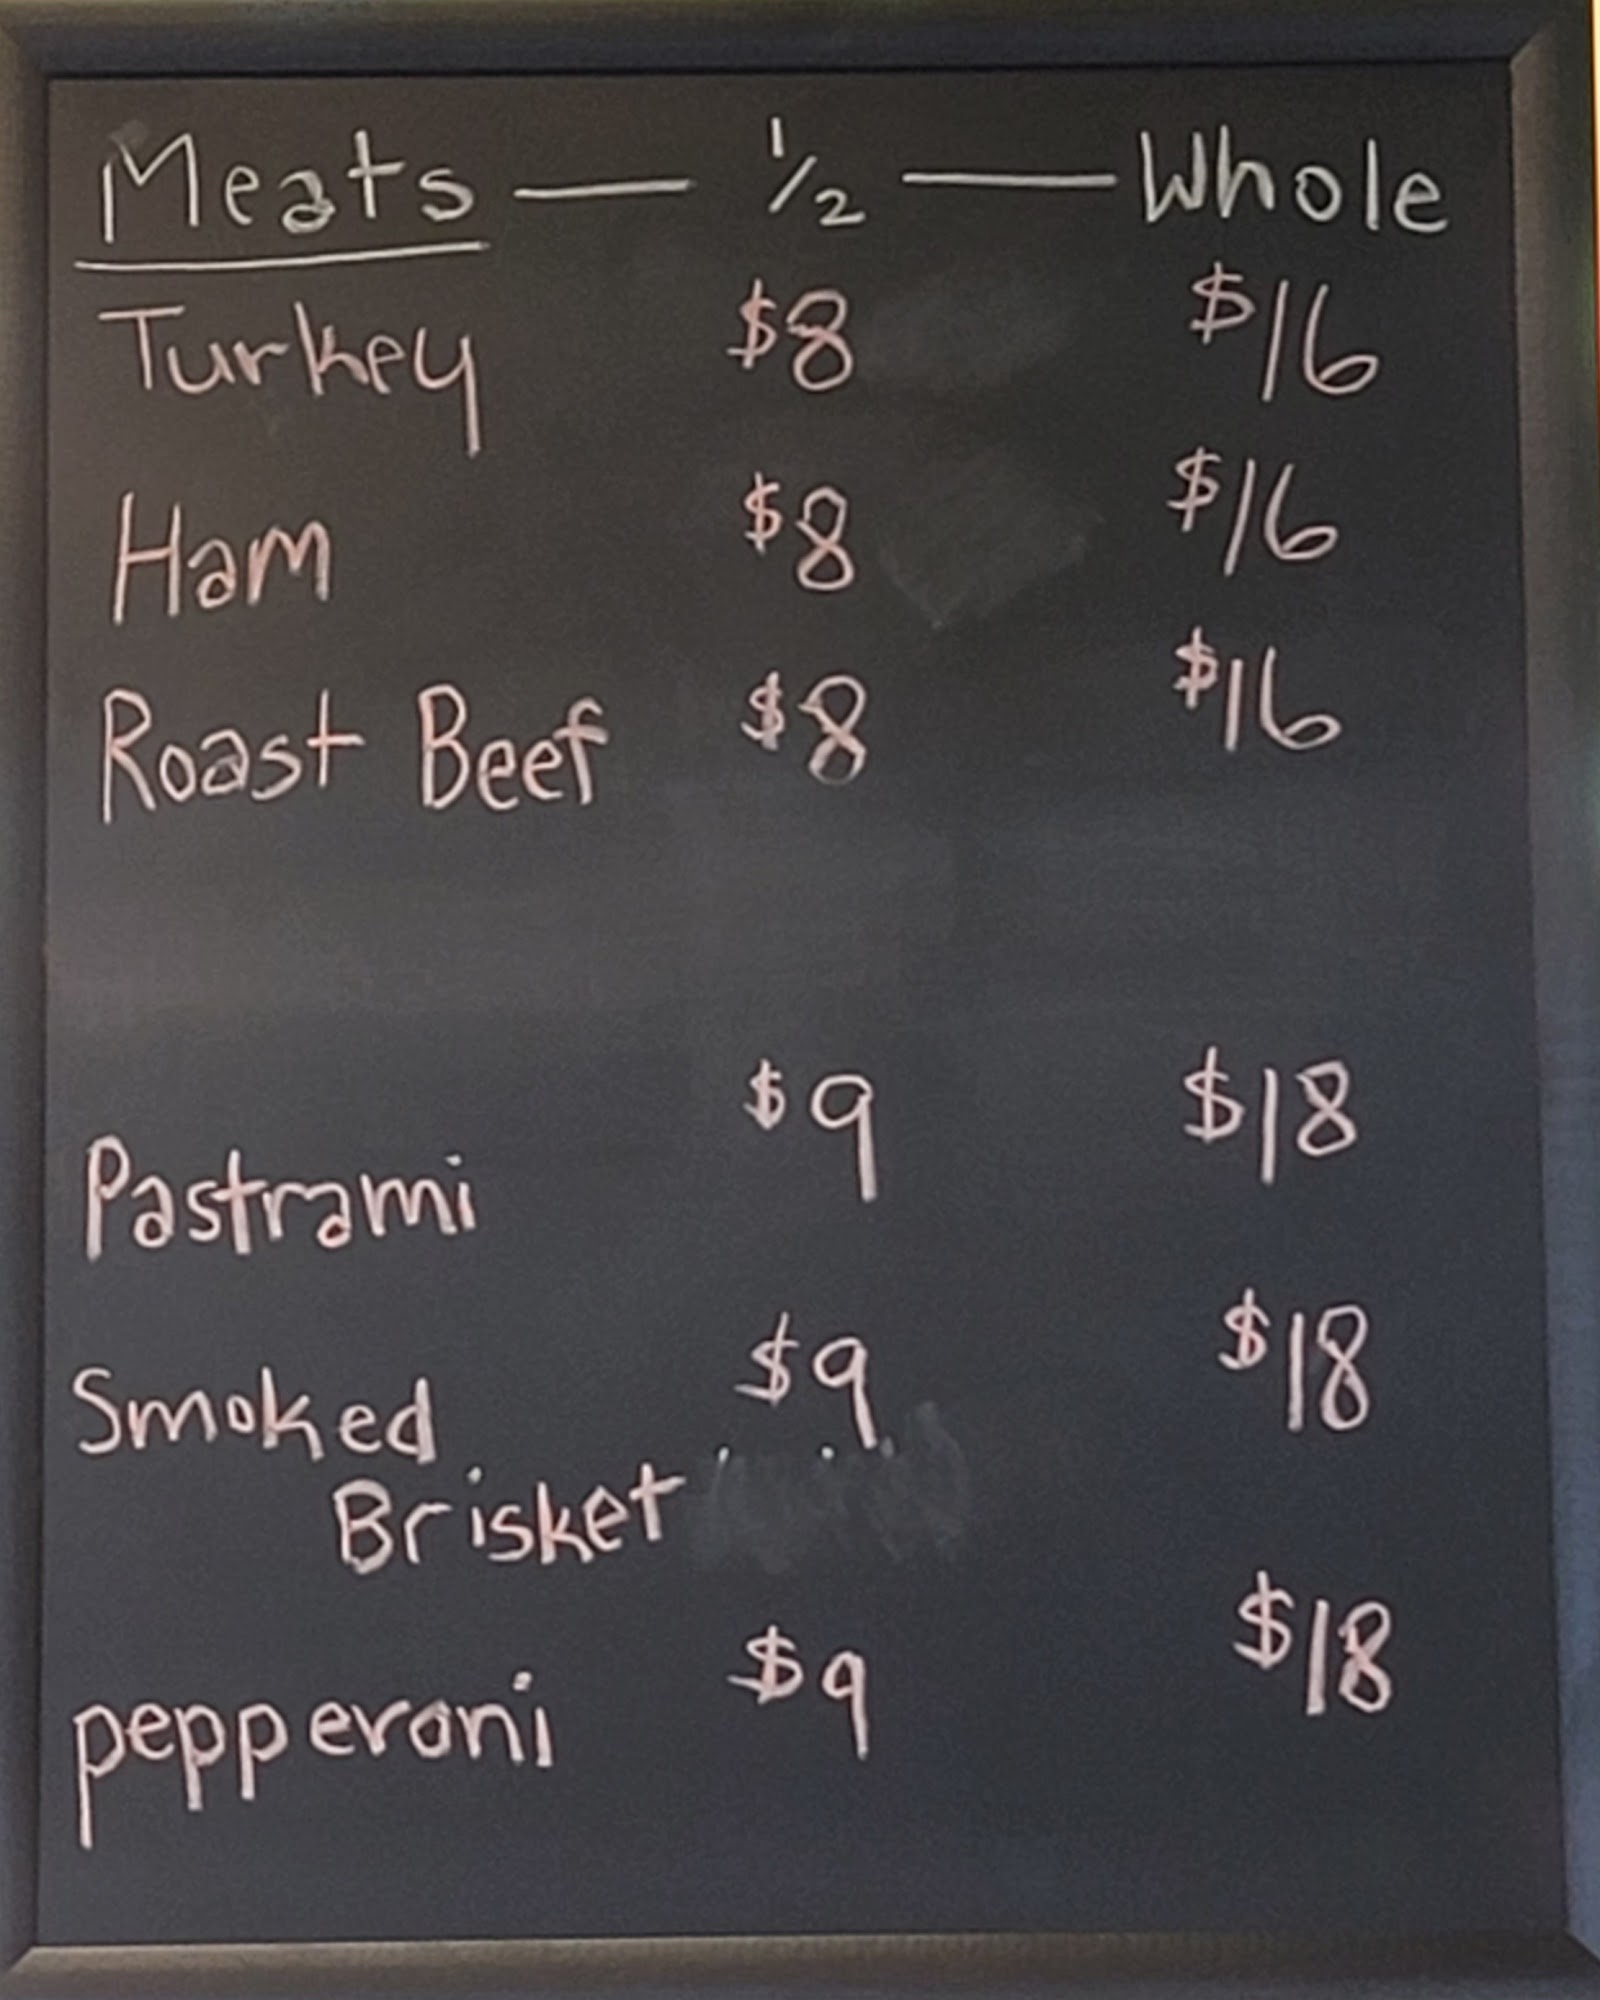 Meats — 1/2 — Whole
Turkey $8 $16
Ham $8 $16
Roast Beef $8 $16
Pastrami $9 $18
Smoked $9 $18
Brisket
pepperoni $9 $18